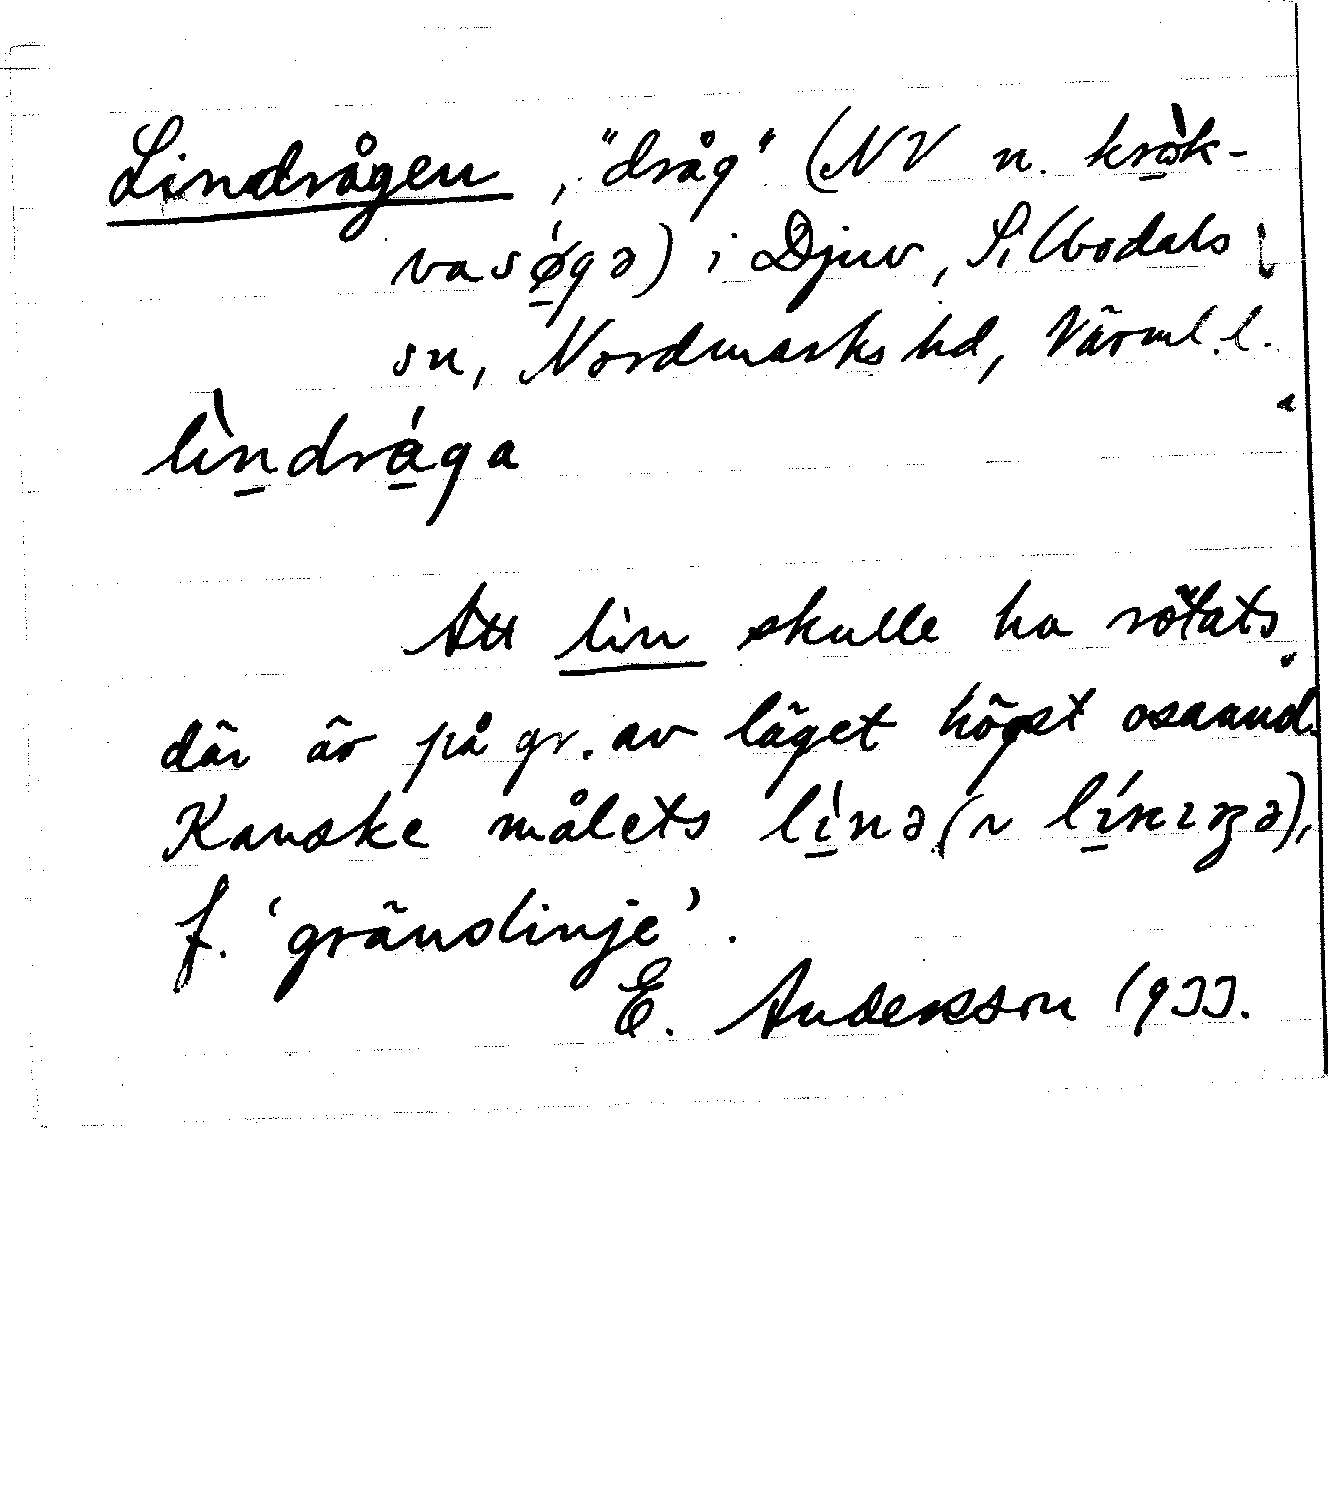 Lindrågen, "dråg" (NV n. krok-
vasøgə) i Djuv, Silbodals
sn, Nordmarks hd, Värml. l.
lìndrága
Att lin skulle ha rötats
där är på gr. av läget högst osannol.
Kanske målets lìnə (~
f. 'gränslinje'.
E. Andersson 1933.